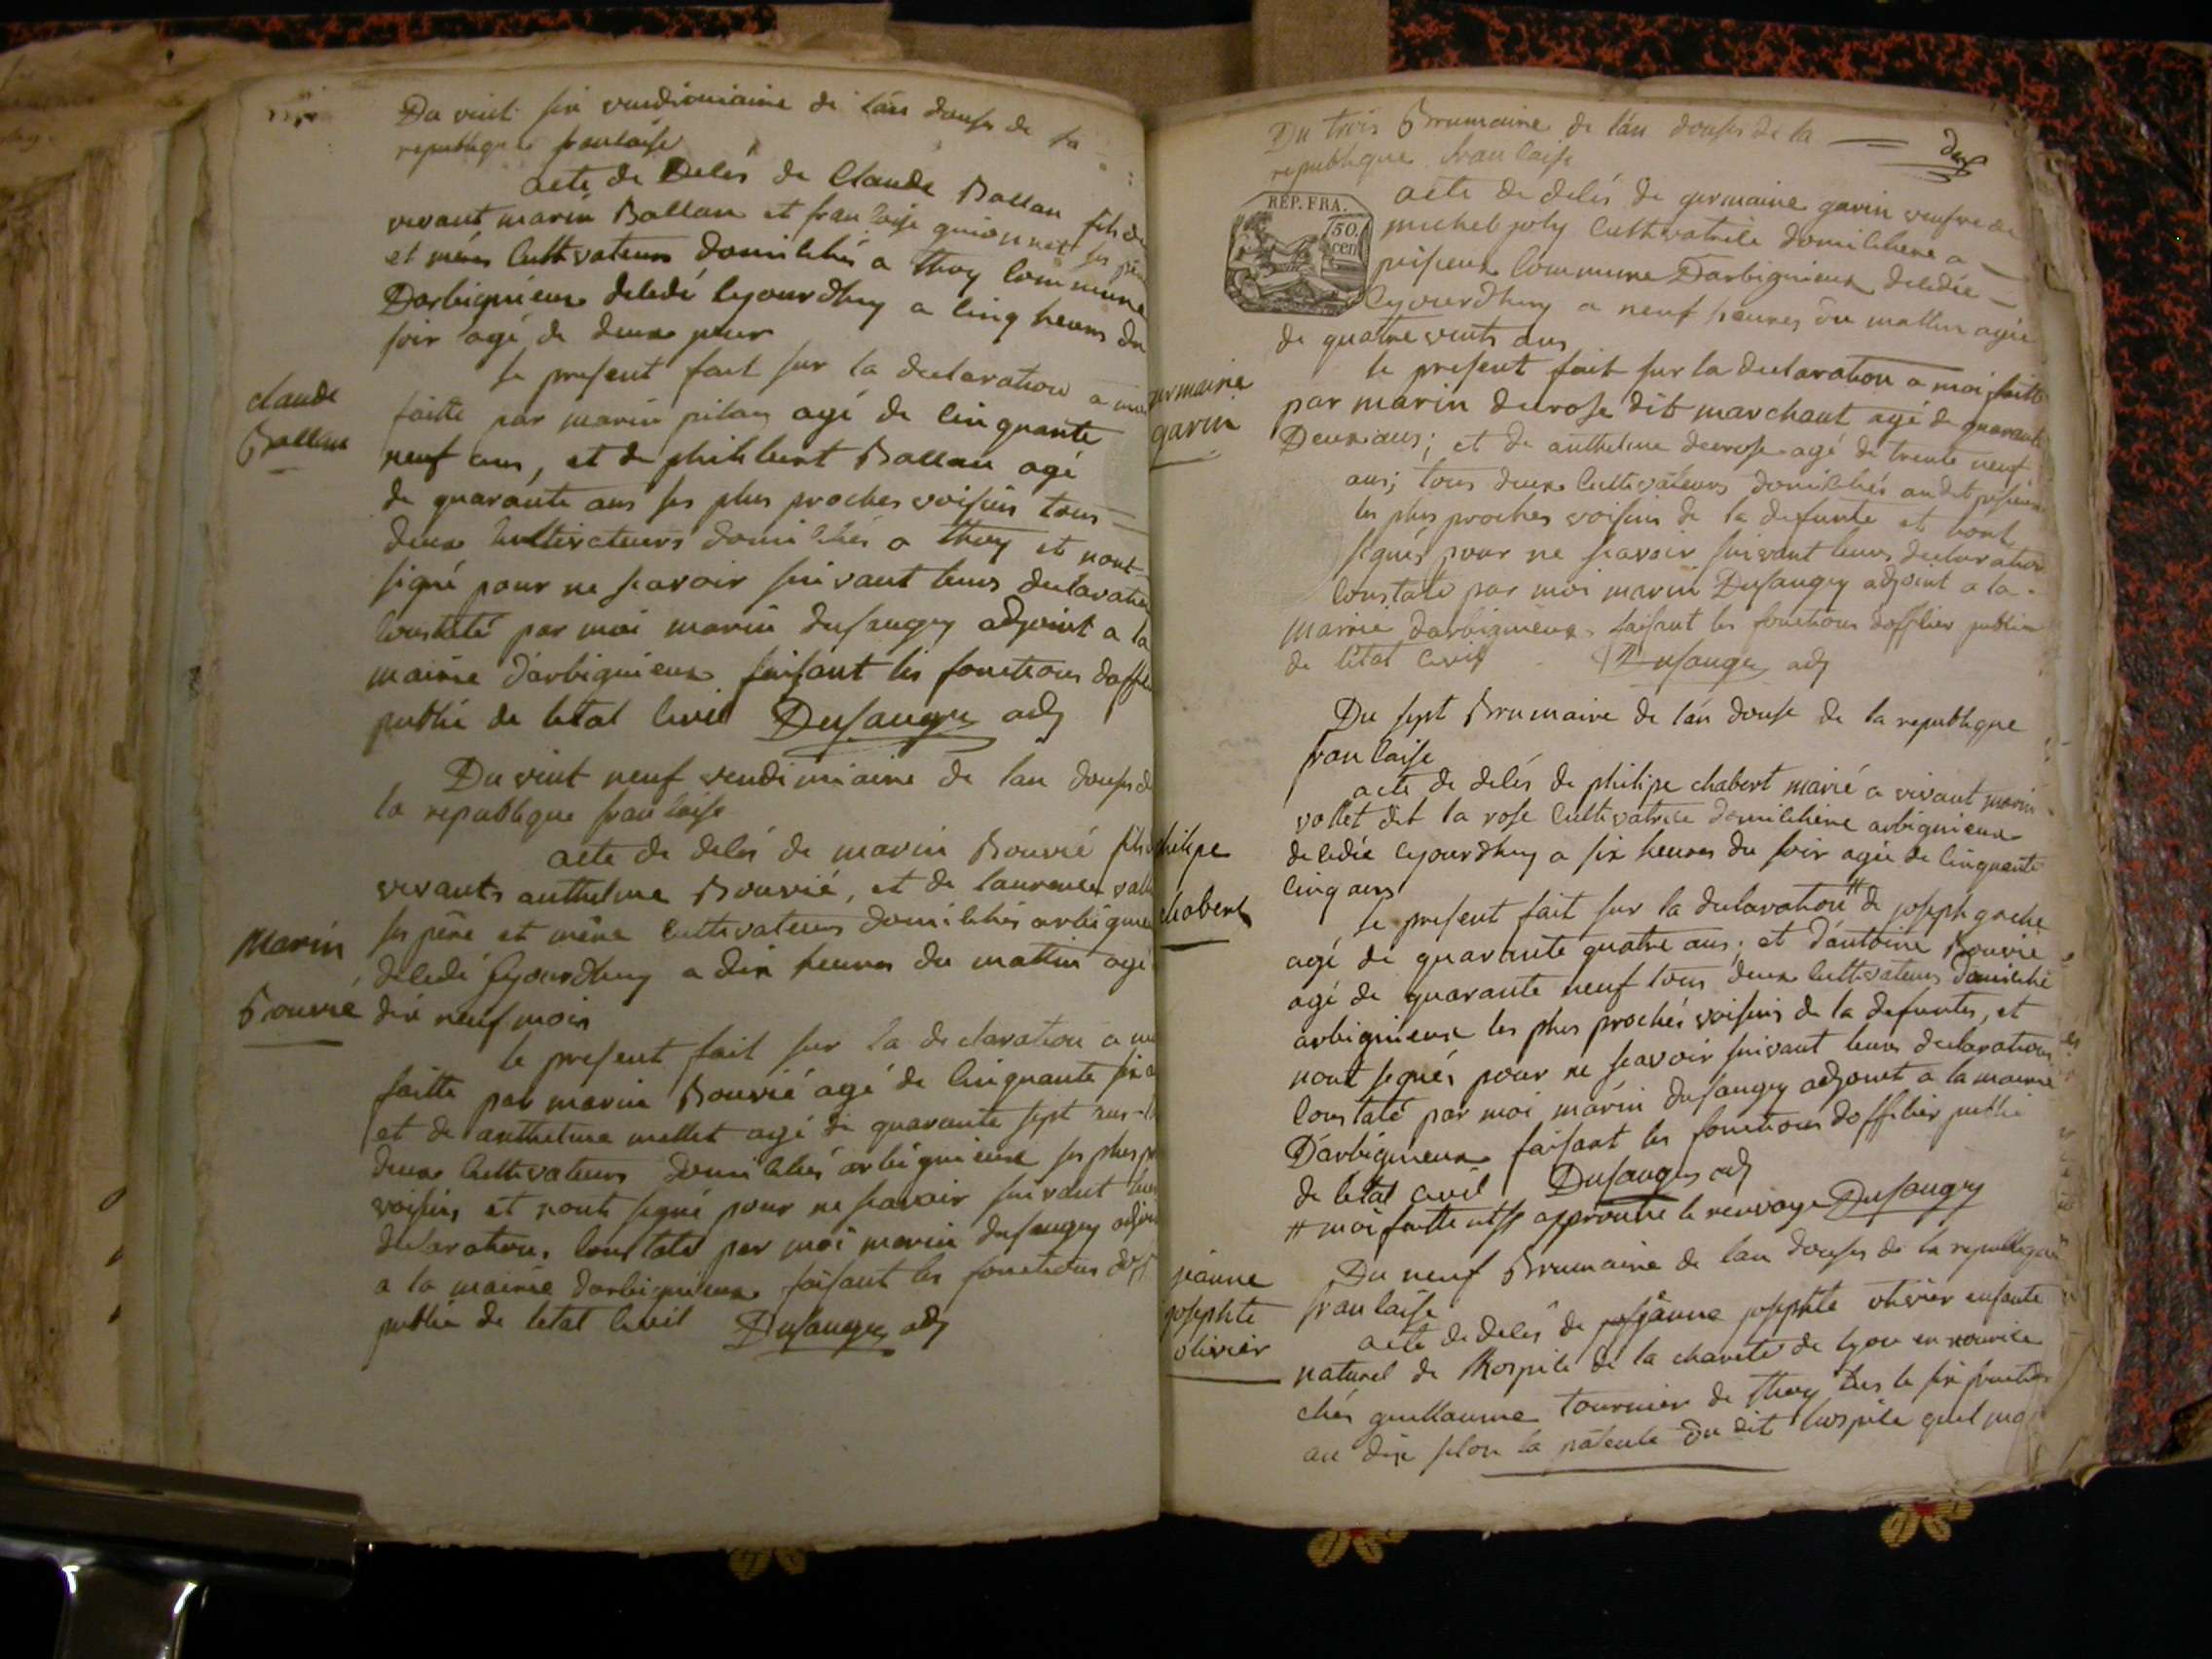 Du vint six vendimiaire de l'an douse de la
republique francaise
acte de decés de Claude Ballan fils de
vivant marin Ballan et francoise guionnet ses père
et mère cultivateurs domiciliés a thoy commune
Darbignieux decedé cejourdhuy a cinq heures du
soir agé de deux jour
le present fait sur la declaration a moi
claude
Ballan
faitte par marin pilan agé de cinquante
neuf ans, et de philibert Ballan agé
de quarante ans ses plus proches voisins tous
deux cultivateurs domiciliés a thoy et nont
signé pour ne scavoir suivant leurs declaration
constaté par moi marin dusaugey adjoint a la
mairie d'arbignieux faisant les fonctions daffi
public de letat civil Dusaugey adj
Du vint neuf vendimiaire de lan douse de
la republique francaise
acte de decés de marin Bouvié fils
vivants anthelme Bouvié, et de laurence vall
Marin
Bouvié
ses père et mère cultivateurs domiciliés arbignieu
decedé cejourdhuy a dix heures du mattin agé
dix neuf mois
le present fait sur la declaration a moi
faitte par marin Bouvié agé de cinquante six a
et de anthelme mellet agé de quarante sept ans
deux cultivateurs domiciliés arbignieux ses plus pr
voisins et nont signé pour ne scavoir suivant leurs
declaration, constaté par moi marin dusaugey adjoi
a la mairie darbignieux faisant les fonctions doff
public de letat civil Dusaugey adj
Du trois Brumaire de l'an douse de la
republique francaise
RÉP. FRA.
50.
cen
acte de decés de germaine garin veufve de
michel joly cultivatrice domiciliere a
peisieux commune Darbignieux decedée
cejourdhuy a neuf heures du mattin agée
de quatre vints ans
le present fait sur la declaration a moi faitte
germaine
garin
par marin derose dit marchant agé de quarante
Deux ans; et de anthelme derose agé de trente neuf
ans; tous deux cultivateurs domiciliés audit peisieux
les plus proches voisins de la defunte et nont
signés pour ne scavoir suivant leurs declaration
constaté par moi marin Dusaugey adjoint a la
mairie darbignieux faisant les fonctions dofficier public
de létat civil Dusaugey adj
Du sept Brumaire de l'an douse de la republique
francaise
acte de decés de philipe chabert marié a vivant marin
vallet dit la rose cultivatrice domiciliere arbignieux
philipe
chabert
decedée cejourdhuy a six heures du soir agée de cinquante
cinq ans
le present fait sur la declaration # de joseph gache
agé de quarante quatre ans; et d'antoine Bouvié
agé de quarante neuf tous deux cultivateurs domicilié
arbignieux les plus prochés voisins de la defuntes, et
nont signés pour ne scavoir suivant leurs declaration
constaté par moi marin dusaugey adjoint a la mairie
D'arbignieux faisant les fonctions dofficier public
de letat civil Dusaugey adj
# moi faitte approuve le renvoye Dusaugey
jeanne
josephte
olivier
Du neuf Brumaire de lan douse de la republique
francaise
acte de decés de jeanne josephte olivier enfante
naturel de lhospice de la chareté de lyon en nourice
chés guillaume tournier de thoy le six fructidor
an dix selon la patente du dit hospice